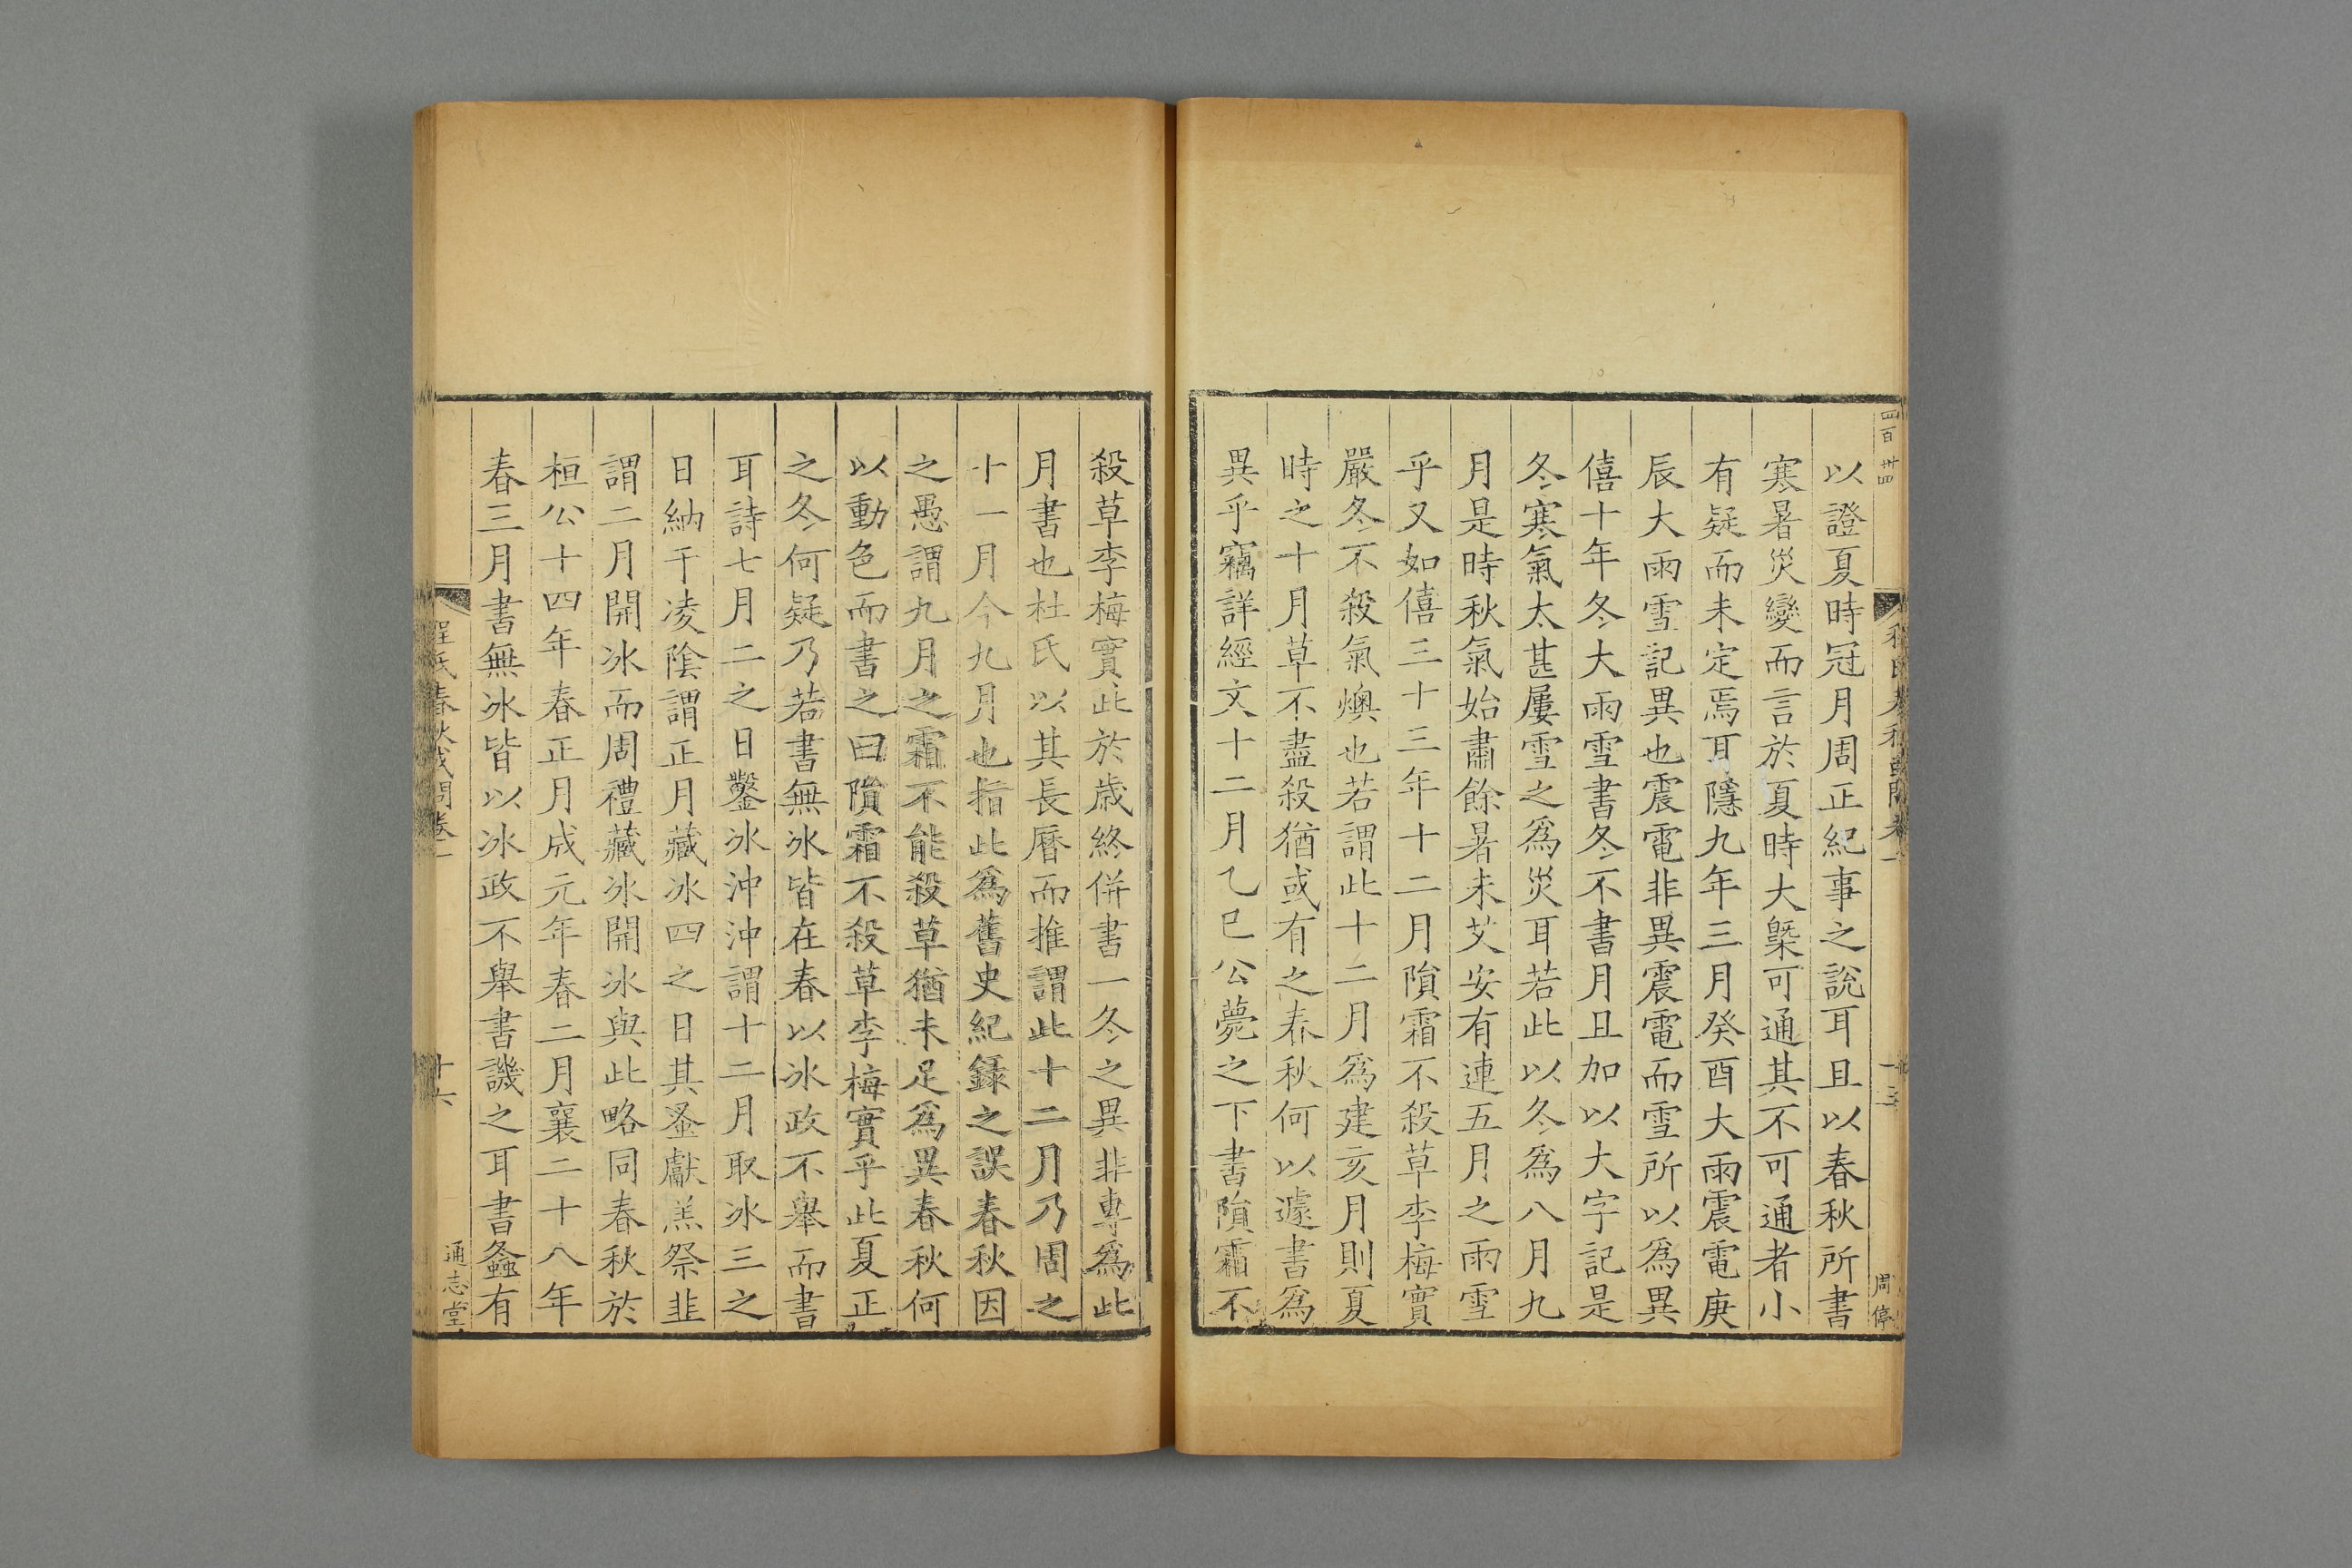 四百廿四
以證夏時冠月周正紀事之說耳且以春秋所書
寒暑災變而言於夏時大槩可通其不可通者小
有疑而未定焉耳隱九年三月癸酉大雨震電庚
辰大雨雪記異也震電非異震電而雪所以爲異
僖十年冬大雨雪書冬不書月且加以大字記是
冬寒氣太甚屢雪之爲災耳若此以冬爲八月九
月是時秋氣始肅餘暑未艾安有連五月之雨雪
乎又如僖三十三年十二月隕霜不殺草李梅實
嚴冬不殺氣燠也若謂此十二月爲建亥月則夏
時之十月草不盡殺猶或有之春秋何以遽書爲
異乎竊詳經文十二月乙巳公薨之下書隕霜不
周儔
殺草李梅實此於歲終併書一冬之異非專爲此
月書也杜氏以其長曆而推謂此十二月乃周之
十一月今九月也指此爲舊史紀錄之誤春秋因
之愚謂九月之霜不能殺草猶未足爲異春秋何
以動色而書之曰隕霜不殺草李梅實乎此夏正
之冬何疑乃若書無冰皆在春以冰政不舉而書
耳詩七月二之日鑿冰沖沖謂十二月取冰三之
日納于凌陰謂正月藏冰四之日其蚤獻羔祭韭
謂二月開冰而周禮藏冰開冰與此略同春秋於
桓公十四年春正月成元年春二月襄二十八年
春三月書無冰皆以冰政不舉書譏之耳書螽有
程氏春秋或問卷一
十六
通志堂